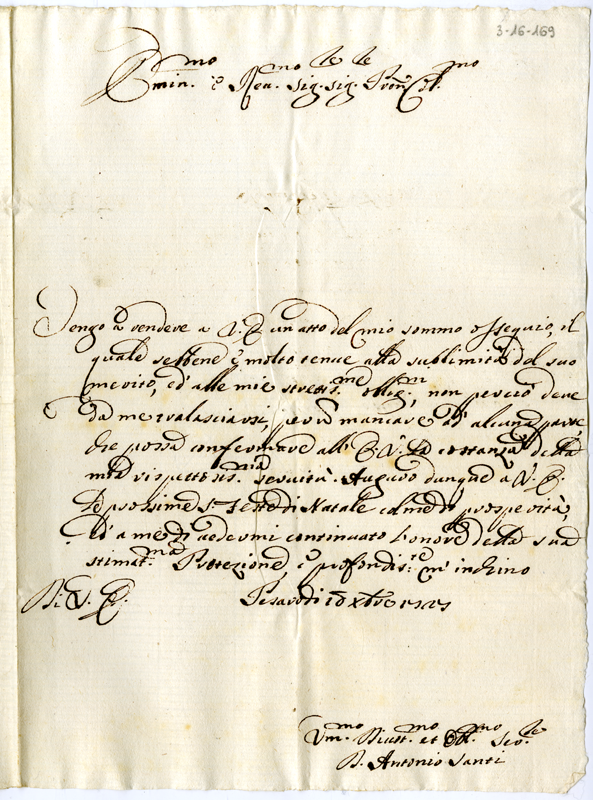 3-16-169
Emin.mo e Reu.mo Sig.le Sig.le Pron Col.mo
Vengo à rendere a V. E. un atto del mio sommo ossequio, il
quale sebene è molto tenue alla sublimità del suo
merito, ed' alle mie strettis.me oblig.ni, non perciò deve
da me tralasciarsi, per non mancare ad' alcuna parte,
che possa confermare all' E. V. la costanza della
mia rispettosis.ma servitù. Auguro dunque a V. E.
le prossime S.te Feste di Natale colme di prosperità,
ed' a me di vedermi continuato l'onore della sua
stimat.ma Protezione, e profondis.te m' inchino
Di V. E.
Pesaro di 10 Xbre
Vm.mo Diuot.mo et Obl.mo Seo.re
B. Antonio Santi